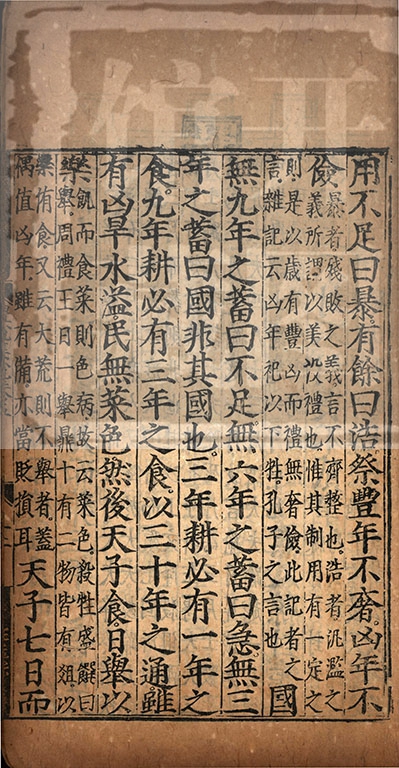 用不足曰暴有餘曰浩祭豐年不奢凶年不
儉
暴者殘敗之義言不齊整也浩者汎濫之
義所謂以美沒禮也惟其制用有一定之
則是以歲有豐凶而禮無奢儉此記者之
言雜記云凶年祀以下牲孔子之言也
國
無九年之蓄曰不足無六年之蓄曰急無三
年之蓄曰國非其國也三年耕必有一年之
食九年耕必有三年之食以三十年之通雖
有凶旱水溢民無菜色然後天子食日舉以
樂
飢而食菜則色病故云菜色殺牲盛饌曰
舉周禮王日一舉鼎十有二物皆有俎以
樂侑食又云大荒則不舉者蓋
偶值凶年雖有備亦當貶損耳
天子七日而